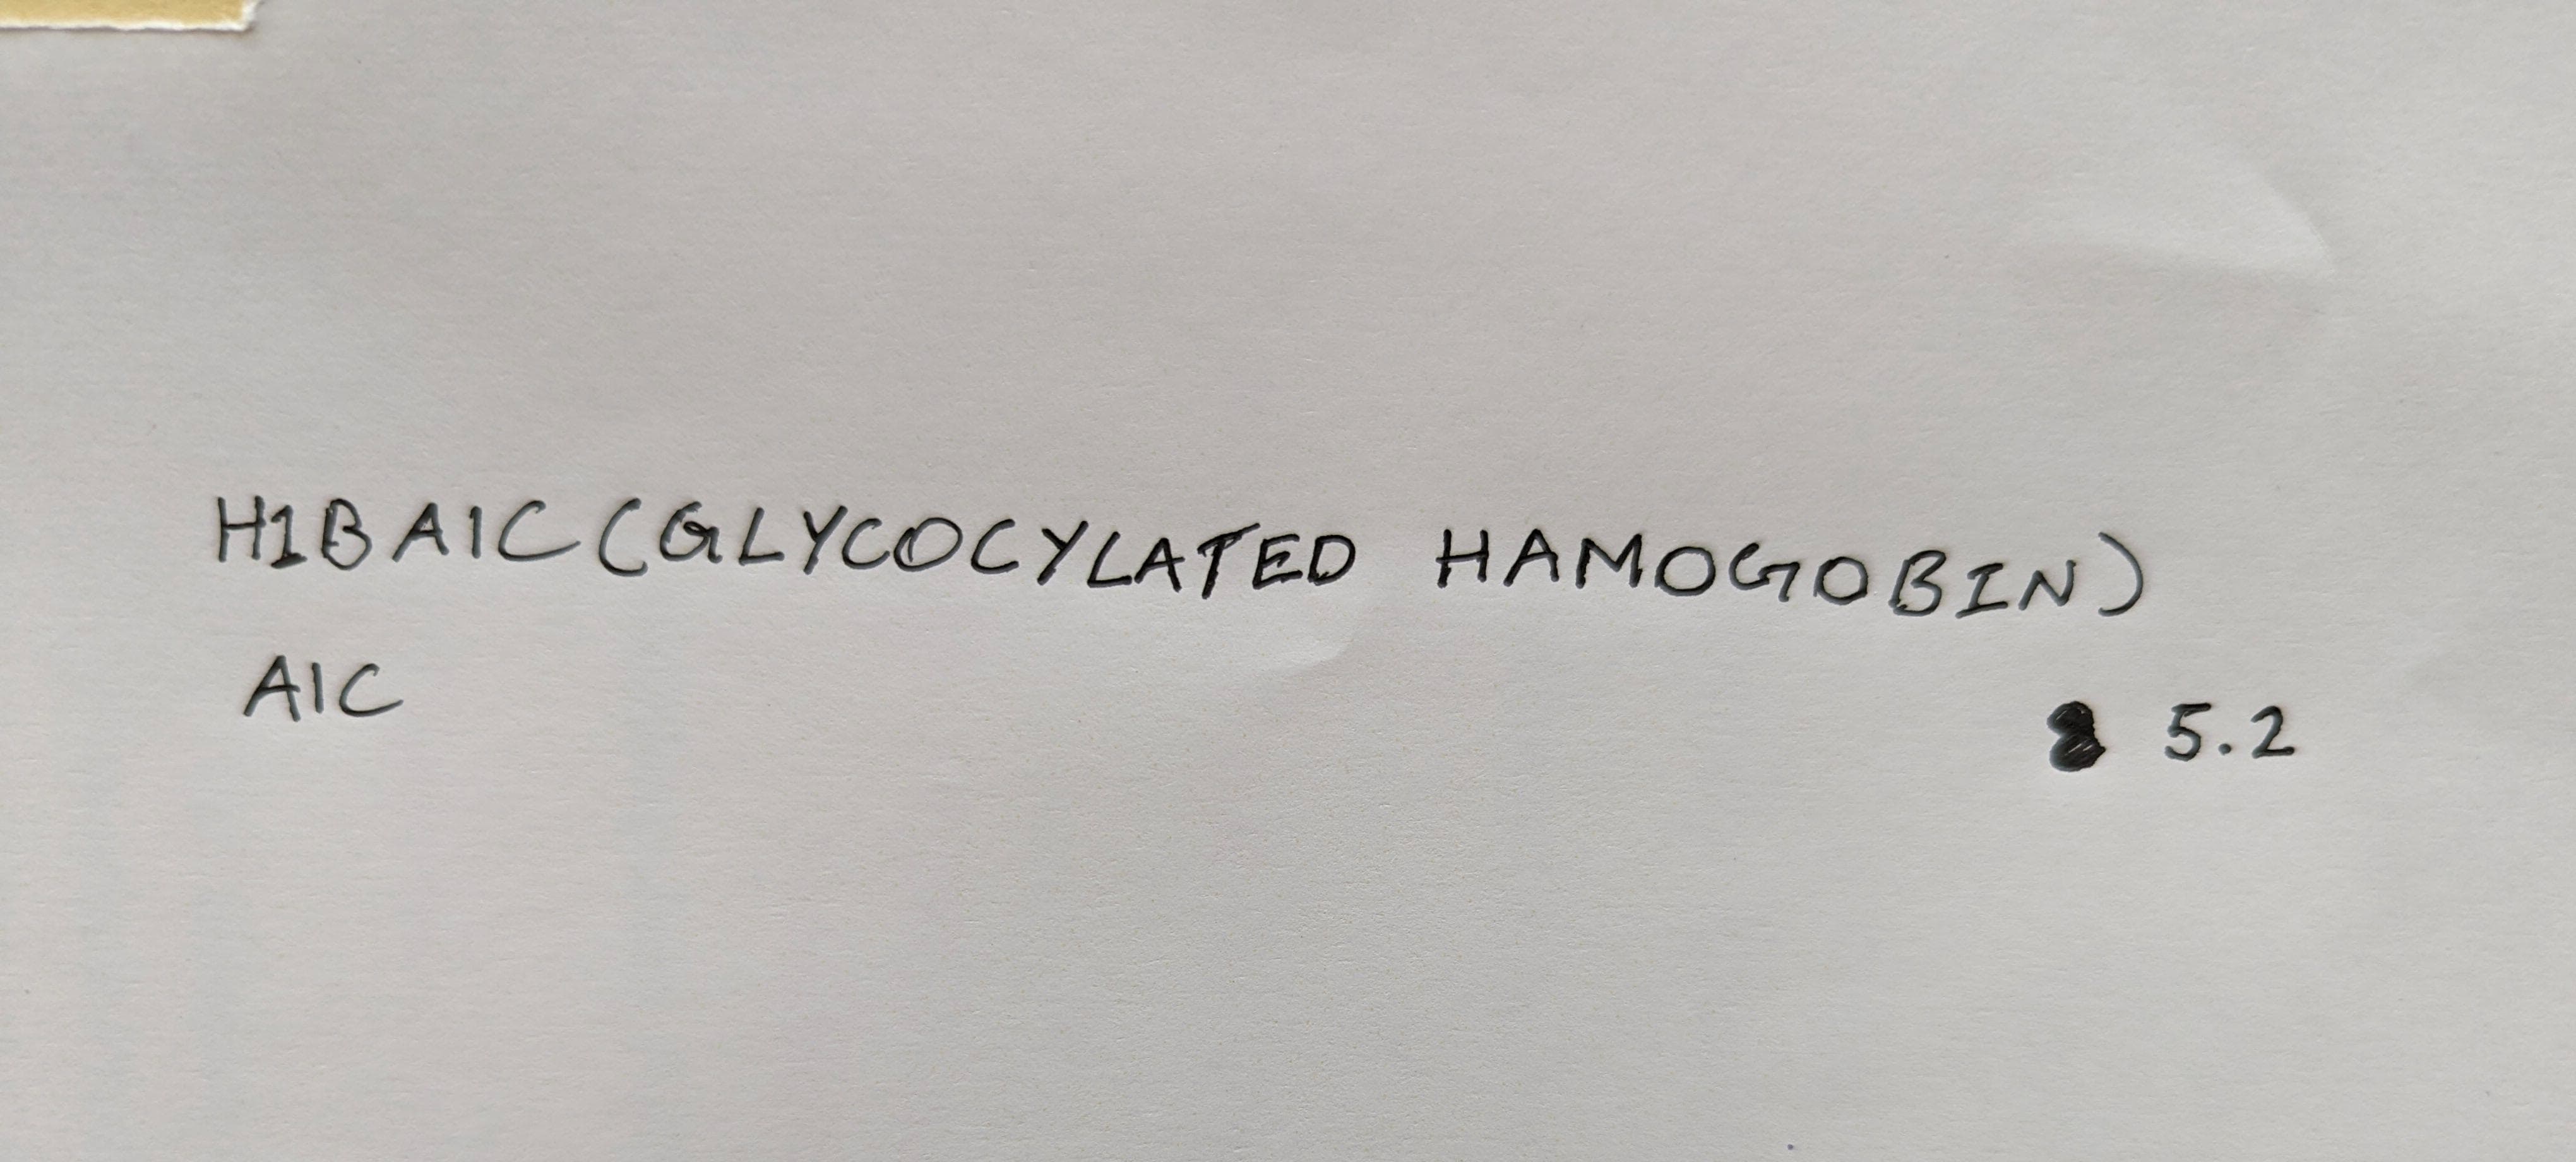 H1BA1C (GLYCOCYLATED HAMOGOBIN)
A1C 5.2